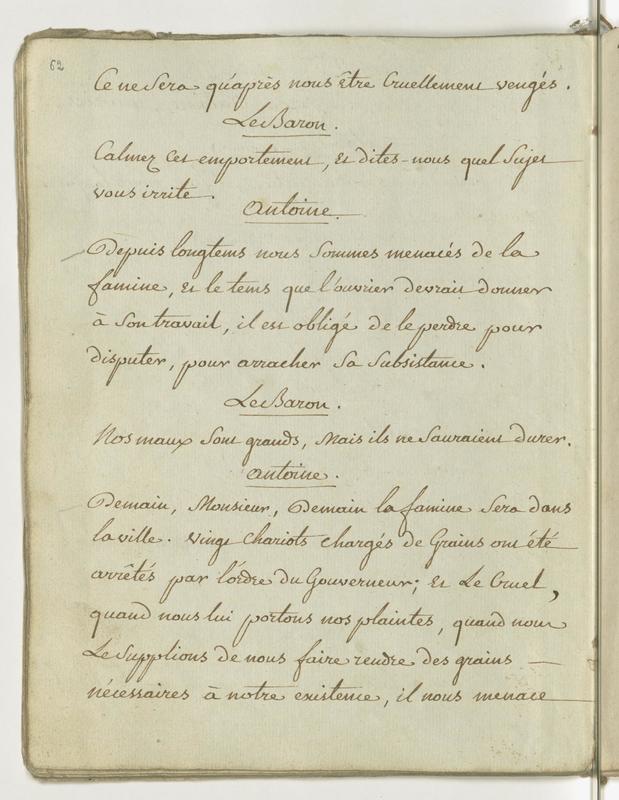 62
Ce ne Sera qu'après nous être Cruellement vengés.
Le Baron.
Calmez Cet emportement, Et dites-nous quel Sujet
vous irrite.
Antoine.
Depuis longtems nous Sommes menacés de la
famine, Et le tems que l'ouvrier devrait donner
à Son travail, il est obligé de le perdre pour
disputer, pour arracher Sa Subsistance.
Le Baron.
Nos maux Sont grands, Mais ils ne Sauraient durer.
Antoine.
Demain, Monsieur, Demain la famine Sera dans
la ville. Vingt Chariots Chargés de Grains ont été
arrêtés par l'ordre du Gouverneur; Et Le Cruel,
quand nous lui portons nos plaintes, quand nous
Le Supplions de nous faire rendre des grains
nécessaires à notre existence, il nous menace